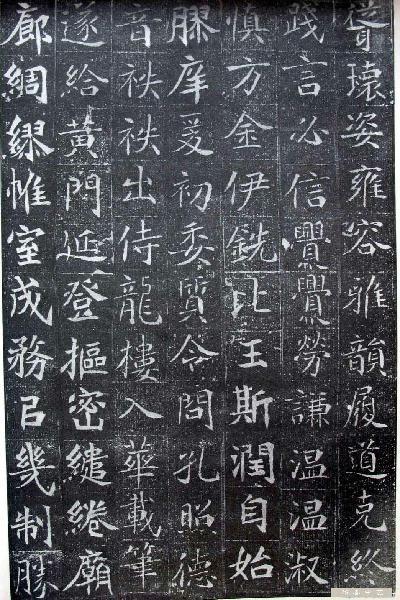 聳瓌姿雍容雅韻履道克終
踐言必信亹亹勞謙温温淑
慎方金伊銑比玉斯潤自始
膠庠爰初委質令問孔照德
音秩秩出侍龍樓入華載筆
遂給黃門延登樞密繾綣廟
廊綢繆帷室成務㠯幾制勝